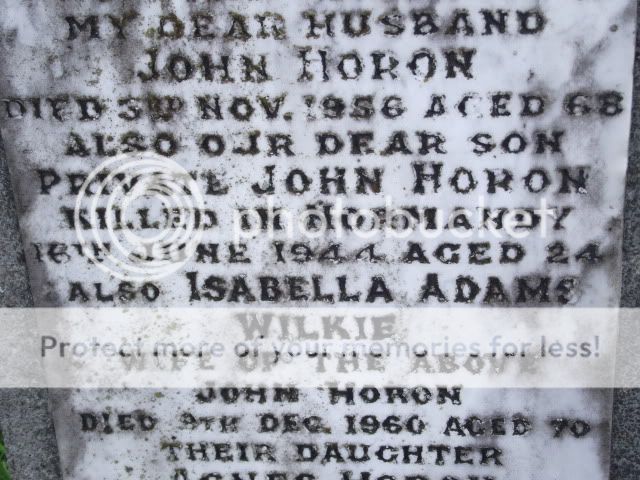 MY DEAR HUSBAND
JOHN HORON
DIED 3RD NOV. 1956 AGED 68
ALSO OUR DEAR SON
PRIVATE JOHN HORON
KILLED IN NORMANDY
16TH JUNE 1944 AGED 24
ALSO ISABELLA ADAMS
WILKIE
WIFE OF THE ABOVE
JOHN HORON
DIED 9TH DEC. 1960 AGED 70
THEIR DAUGHTER
AGNES HORON
photobucket
Protect more of your memories for less!